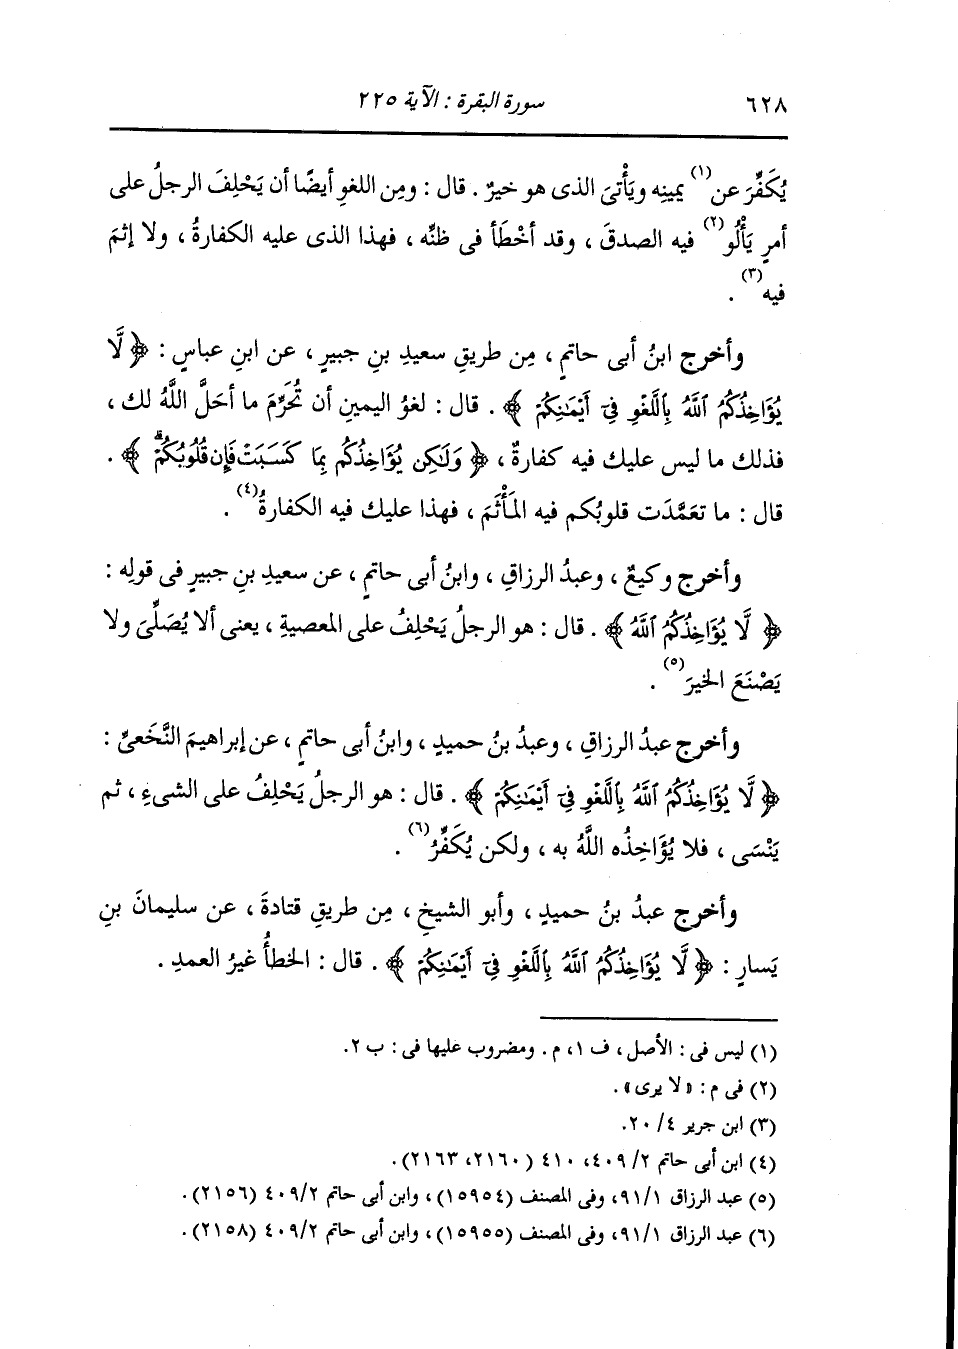 ٦٢٨ سورة البقرة : الآية ٢٢٥
يُكَفِّرَ عن(١) يمينِه ويَأْتىَ الذى هو خيرٌ . قال : ومِن اللغوِ أيضًا أن يَحْلِفَ الرجلُ على
أمرٍ يَأْلُو(٢) فيه الصدقَ ، وقد أخْطَأ فى ظنِّه ، فهذا الذى عليه الكفارةُ ، ولا إثمَ
فيه(٣) .
وأخرج ابنُ أبى حاتمٍ ، مِن طريقِ سعيدِ بنِ جبيرٍ ، عن ابنِ عباسٍ : ﴿ لَّا
يُؤَاخِذُكُمُ ٱللَّهُ بِٱللَّغْوِ فِىٓ أَيْمَٰنِكُمْ ﴾ . قال : لغوُ اليمينِ أن تُحَرِّمَ ما أحَلَّ اللَّهُ لك ،
فذلك ما ليس عليك فيه كفارةٌ ، ﴿ وَلَٰكِن يُؤَاخِذُكُم بِمَا كَسَبَتْ فَإِن قُلُوبُكُمْ ۗ ﴾ .
قال : ما تعَمَّدَت قلوبُكم فيه المَأْثَمَ ، فهذا عليك فيه الكفارةُ(٤) .
وأخرج وكيعٌ ، وعبدُ الرزاقِ ، وابنُ أبى حاتمٍ ، عن سعيدِ بنِ جبيرٍ فى قولِه :
﴿ لَّا يُؤَاخِذُكُمُ ٱللَّهُ ﴾ . قال : هو الرجلُ يَحْلِفُ على المعصيةِ ، يعنى ألا يُصَلِّىَ ولا
يَصْنَعَ الخيرَ(٥) .
وأخرج عبدُ الرزاقِ ، وعبدُ بنُ حميدٍ ، وابنُ أبى حاتمٍ ، عن إبراهيمَ النَّخَعىِّ :
﴿ لَّا يُؤَاخِذُكُمُ ٱللَّهُ بِٱللَّغْوِ فِىٓ أَيْمَٰنِكُمْ ﴾ . قال : هو الرجلُ يَحْلِفُ على الشىءِ ، ثم
يَنْسَى ، فلا يُؤَاخِذُه اللَّهُ به ، ولكن يُكَفِّرُ(٦) .
وأخرج عبدُ بنُ حميدٍ ، وأبو الشيخِ ، مِن طريقِ قتادةَ ، عن سليمانَ بنِ
يَسارٍ : ﴿ لَّا يُؤَاخِذُكُمُ ٱللَّهُ بِٱللَّغْوِ فِىٓ أَيْمَٰنِكُمْ ﴾ . قال : الخطأُ غيرُ العمدِ .
(١) ليس فى : الأصل ، ف ١، م . ومضروب عليها فى : ب ٢.
(٢) فى م : «لا يرى» .
(٣) ابن جرير ٤/ ٢٠.
(٤) ابن أبى حاتم ٢/ ٤٠٩، ٤١٠ (٢١٦٠، ٢١٦٣).
(٥) عبد الرزاق ٩١/١، وفى المصنف (١٥٩٥٤)، وابن أبى حاتم ٤٠٩/٢ (٢١٥٦).
(٦) عبد الرزاق ٩١/١، وفى المصنف (١٥٩٥٥)، وابن أبى حاتم ٤٠٩/٢ (٢١٥٨).